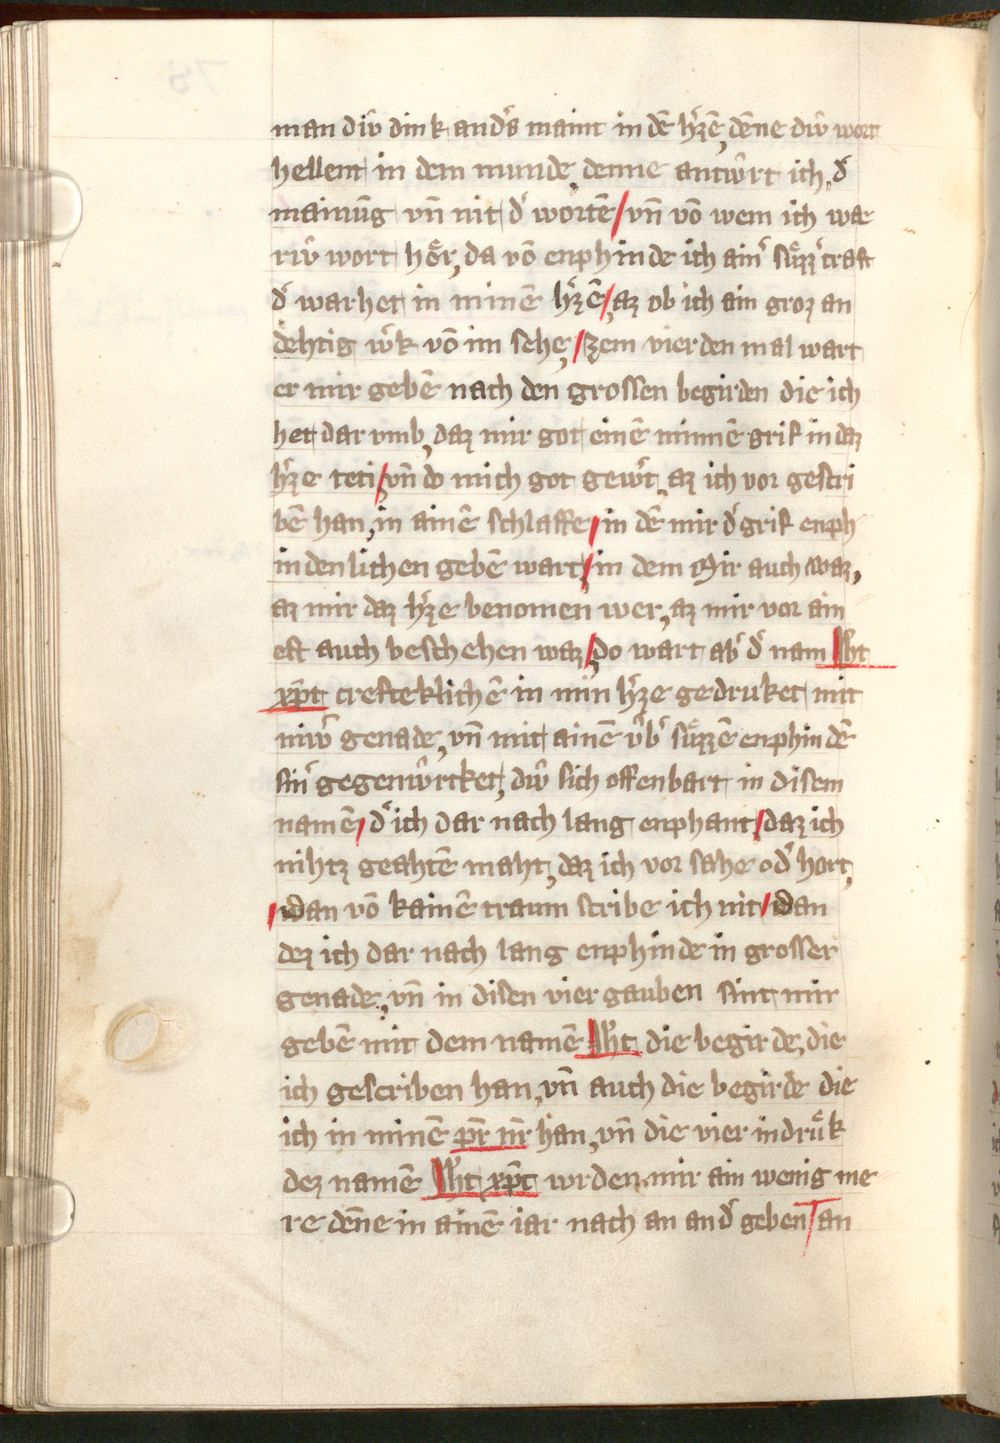 man diͮ dink andˢs maint in dē hˢzē, dēne diͮ wort
hellent in dem munde, denne antwrt ich, dˢ
mainūg vn̄ nit dˢ wortē / vn̄ vō wem ich wa
riͮ wort hoͤr, da vō enphinde ich ainˢ suͤzzˢ craft
dˢ warhet in minē hˢzē / az ob ich ain groz an
dehtig wˢk vō im sehe, / zem vierden mal wart
er mir gebē nach den grossen begirden die ich
het dar vmb, daz mir got einē minnē grif in daz
hˢze teti / vn̄ do mich got gewˢt, az ich vor gescri
bē han, in ainē schlaffe / in dē mir dˢ grif enph
indenlichen gebē wart / in dem mir auch waz,
az mir daz hˢze benomen wer, az mir vor ain
est auch beschehen waz / do wart abˢ dˢ nam Jhc
xp̄c crefteklichē in min hˢze gedruket mit
niwͮ genade, vn̄ mit ainē vͮbˢ suͤzzē enphindē
sinˢ gegenwͮrtket, diͮ sich offenbart in disem
namē / dˢ ich dar nach lang enphant / daz ich
nihtz geahtē maht, daz ich vor sahe odˢ hort,
/ wan vō kainē traum scribe ich nit / wan
dez ich dar nach lang enphinde in grosser
genade, vn̄ in disen vier gauben sint mir
gebē mit dem namē Jhc die begirde, die
ich gescriben han, vn̄ auch die begirde die
ich in minē pr̄ nr̄ han, vn̄ die vier indruͤk
dez namē Jhc xp̄c wrden mir ain wenig me
re dēne in ainē iar nach an andˢ geben an